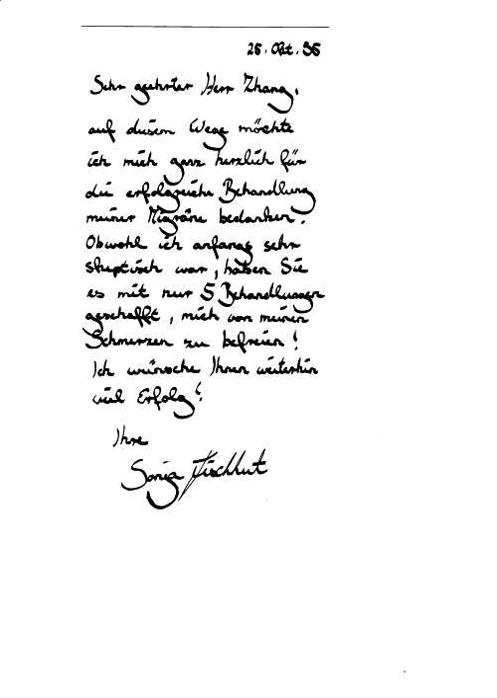 26. Okt. 96
Sehr geehrter Herr Zhang,
auf diesem Wege möchte
ich mich ganz herzlich für
die erfolgreiche Behandlung
meiner Migräne bedanken.
Obwohl ich anfangs sehr
skeptisch war, haben Sie
es mit nur 5 Behandlungen
geschafft, mich von meinen
Schmerzen zu befreien!
Ich wünsche Ihnen weiterhin
viel Erfolg!
Ihre
Sonja Fischhut